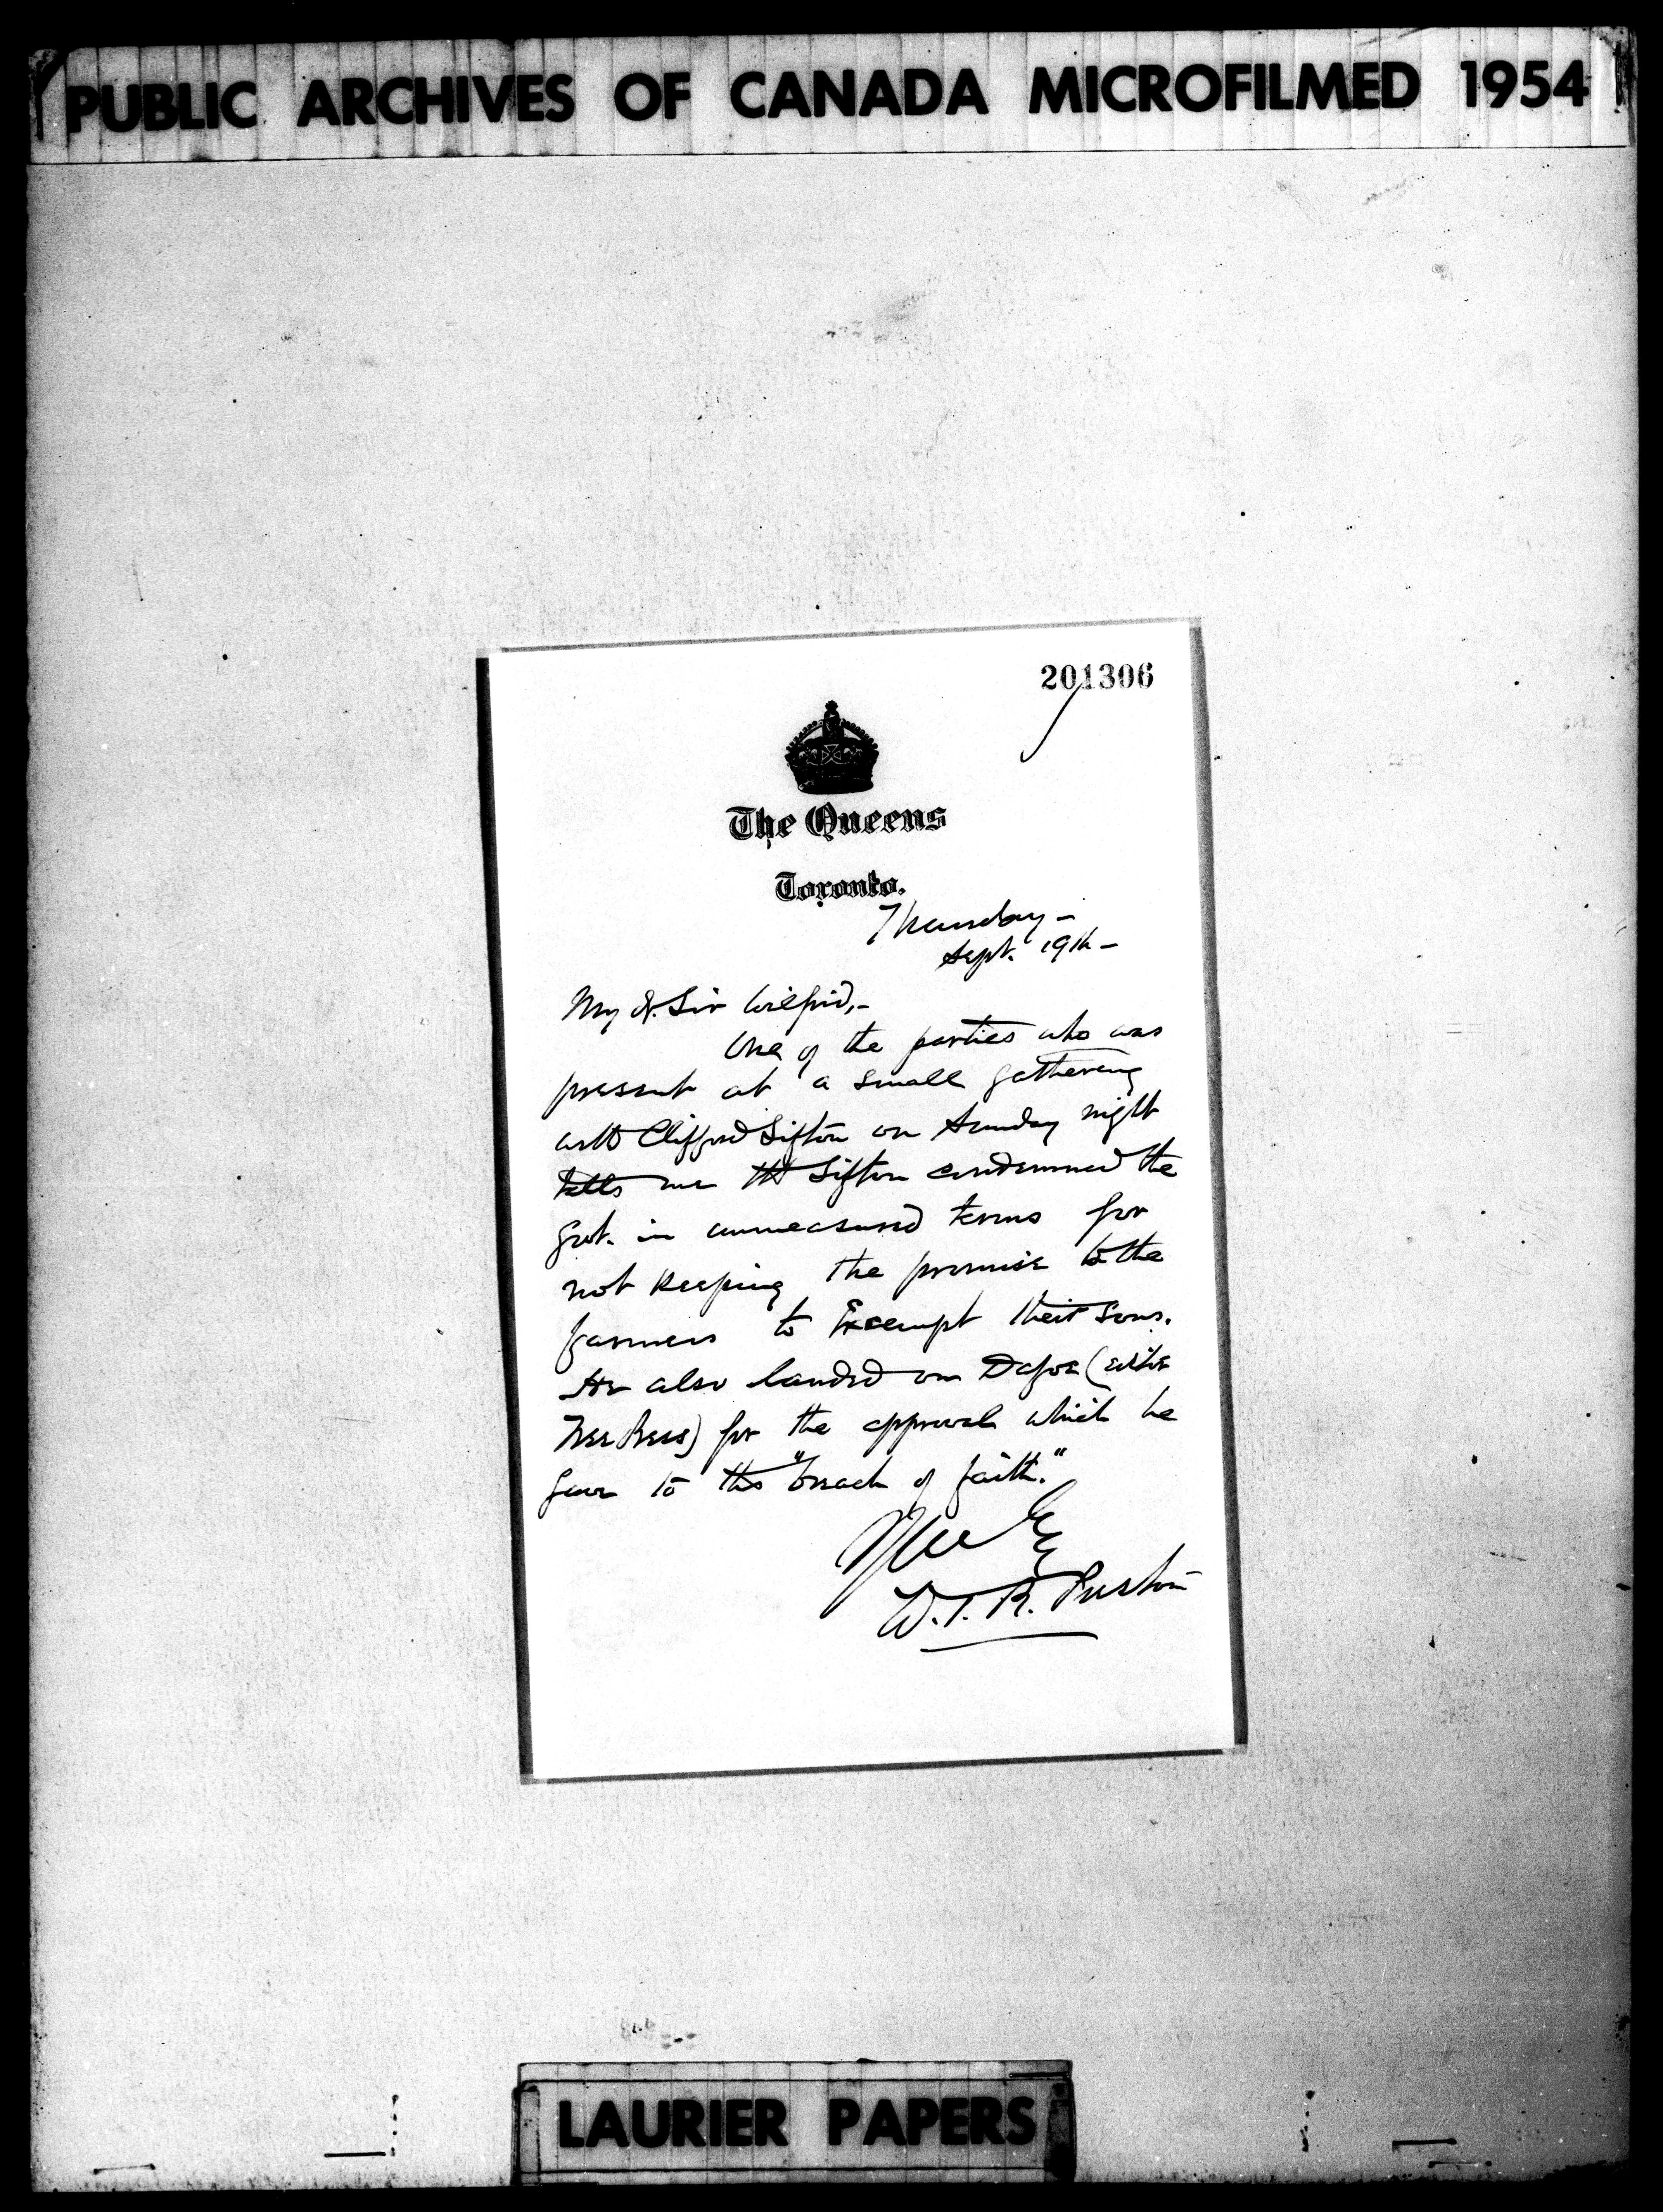 PUBLIC ARCHIVES OF CANADA MICROFILMED 1954
201306
The Queens
Toronto.
Thursday –
Sept. 19th –
My d. Sir Wilfrid,–
One of the parties who was
present at a small gathering
with Clifford Sifton on Sunday night
tells me tht Sifton condemned the
Gvt. in unmeasured terms for
not keeping the promise to the
farmers to Exempt their sons.
He also landed on Dafoe (editor
Free Press) for the approval which he
gave to this "breach of faith."
W. T. R. Preston
LAURIER PAPERS